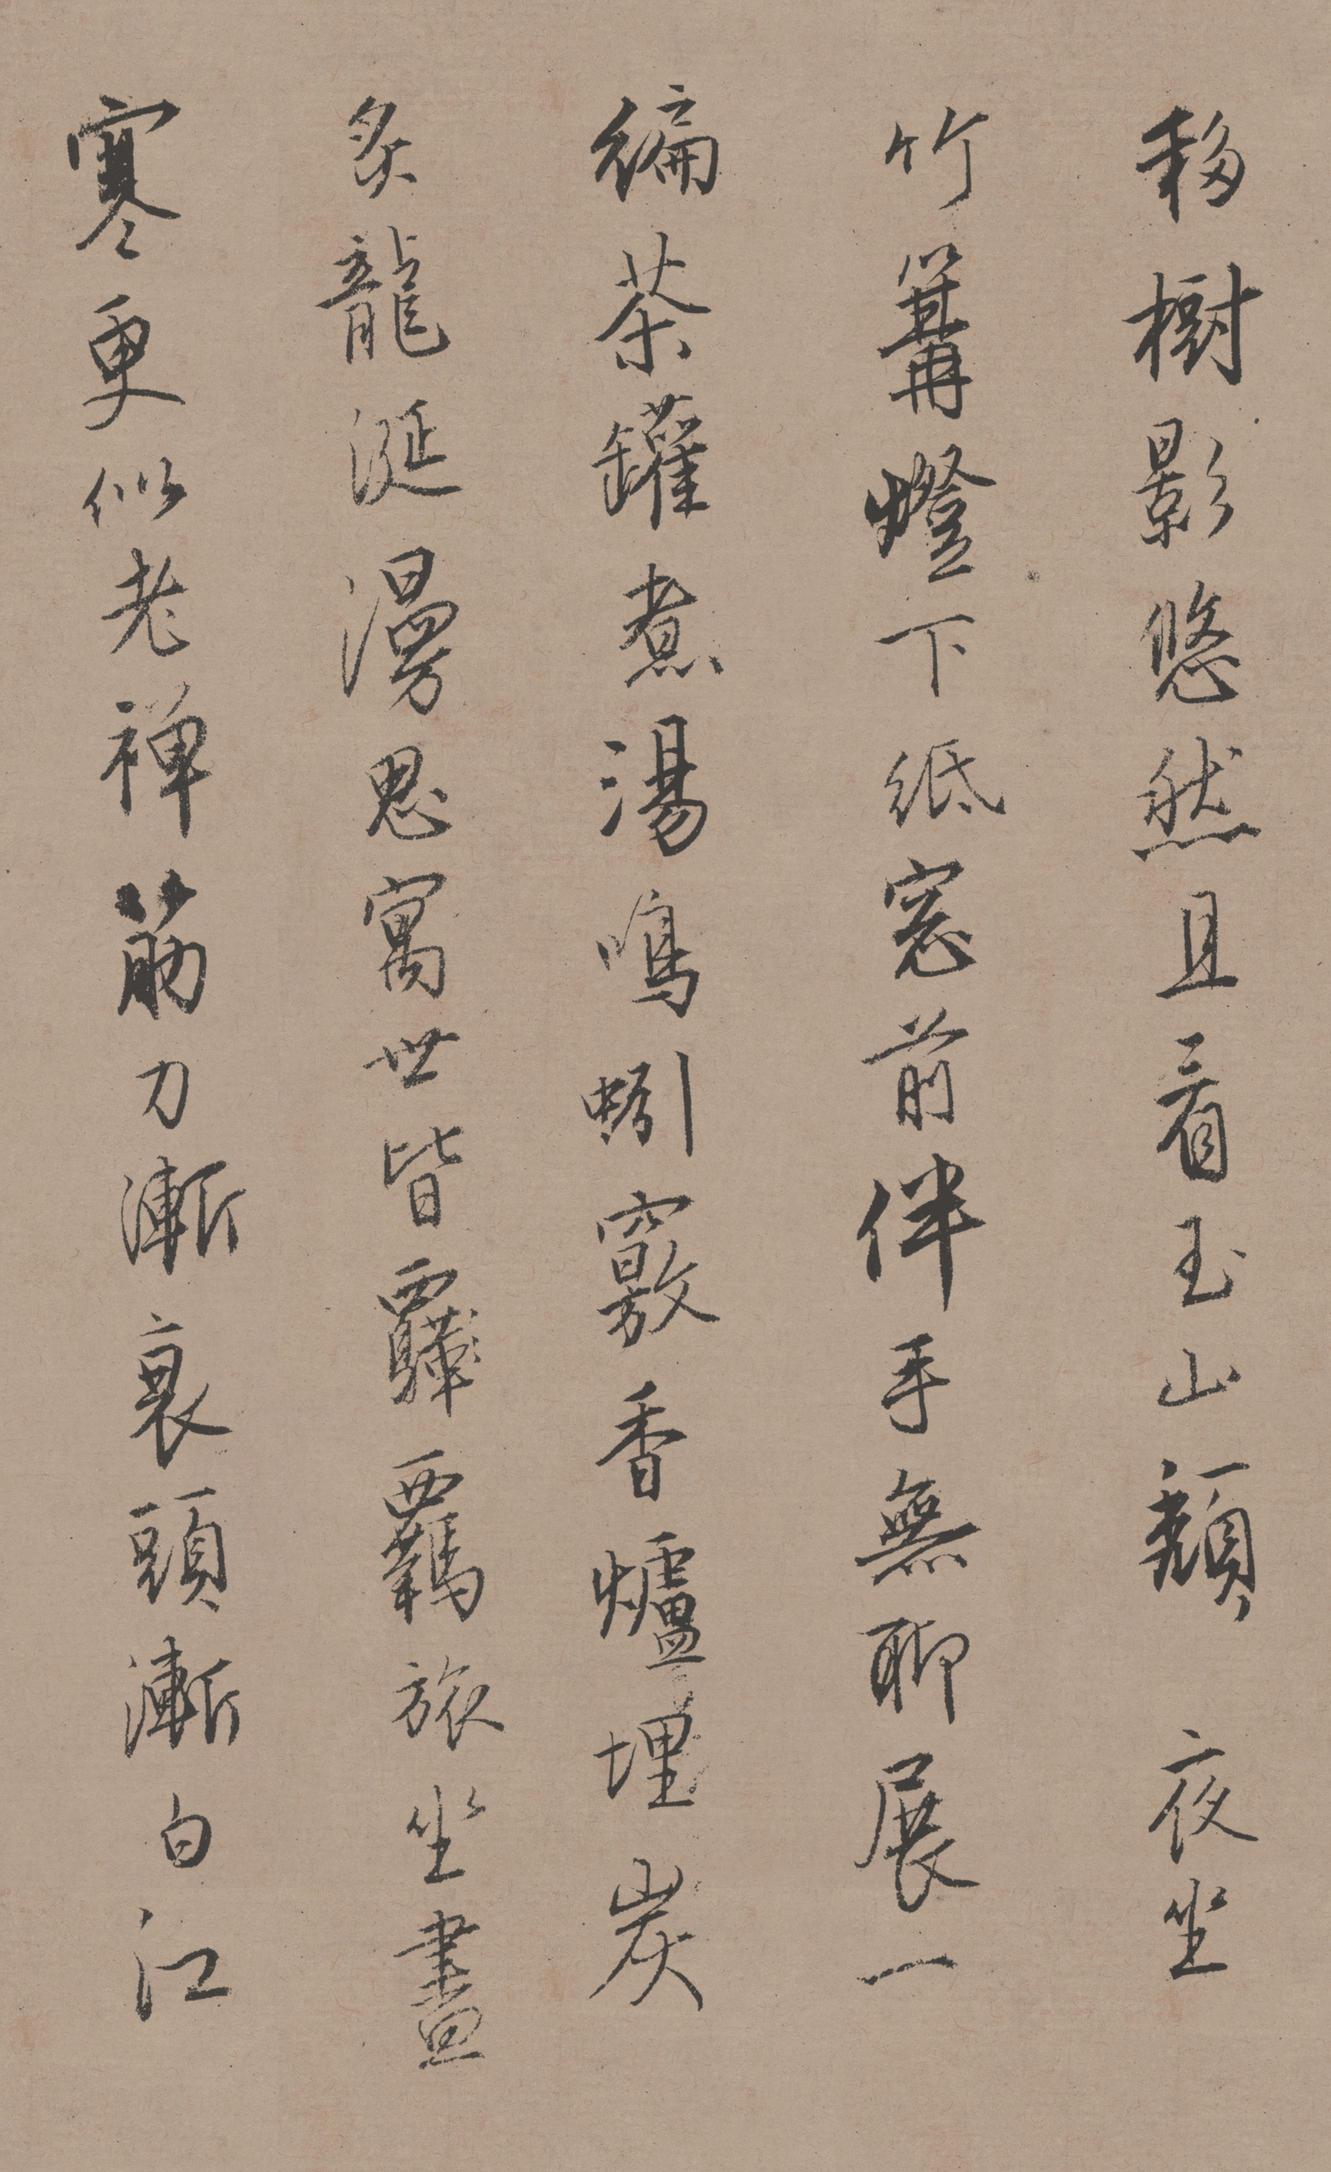 移樹影悠然且看玉山頹　夜坐
竹篝燈下紙窓前伴手無聊展一
編茶罐煮湯鳴蚓竅香爐埋炭
炙龍涎漫思寓世皆羈羇旅坐盡
寒更似老禅筋力漸衰頭漸白江